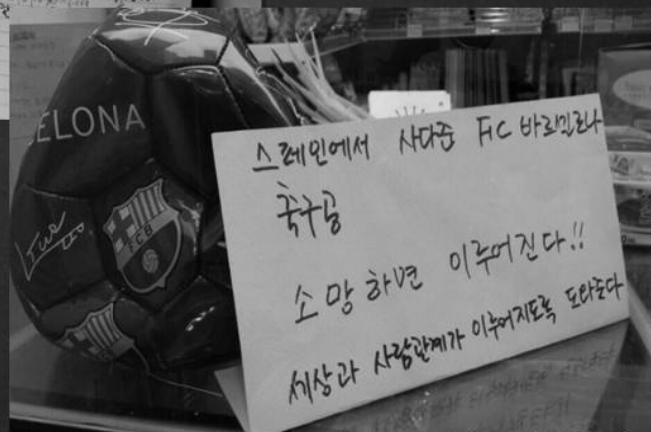 ELONA
FCB
스페인에서 사다준 FC 바르셀로나
축구공
소망하면 이루어진다!!
세상과 사람관계가 이루어지도록 도와준다